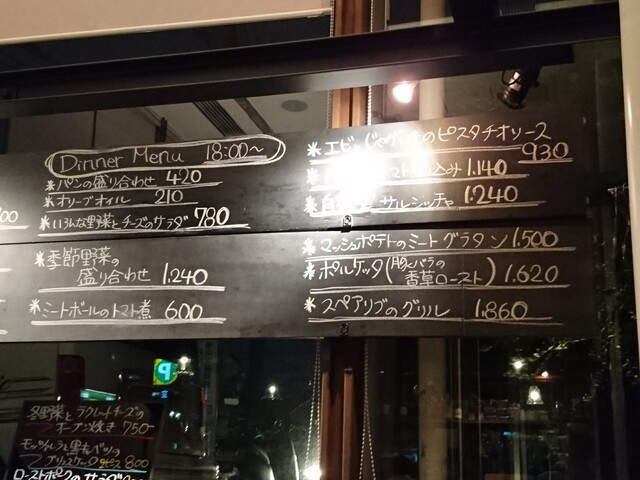 Dinner Menu 18:00〜
*パンの盛り合わせ 420
*オリーブオイル 210
*いろんな野菜とチーズのサラダ 780
*季節野菜の
盛り合わせ 1.240
*ミートボールのトマト煮 600
*エビとじゃがいものピスタチオソース
930
込み 1.140
*自 サルシッチャ 1.240
*マッシュポテトのミートグラタン 1.500
*ポルケッタ(豚バラの
香草ロースト) 1.620
*スペアリブのグリル 1.860
00
P
冬野菜とラクレットチーズの
オーブン焼き 750-
モッツァレラと黒キャベツの
800
ローストポークのサラダ